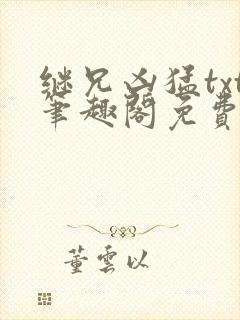 继兄凶猛txt
笔趣阁免費
董雲以